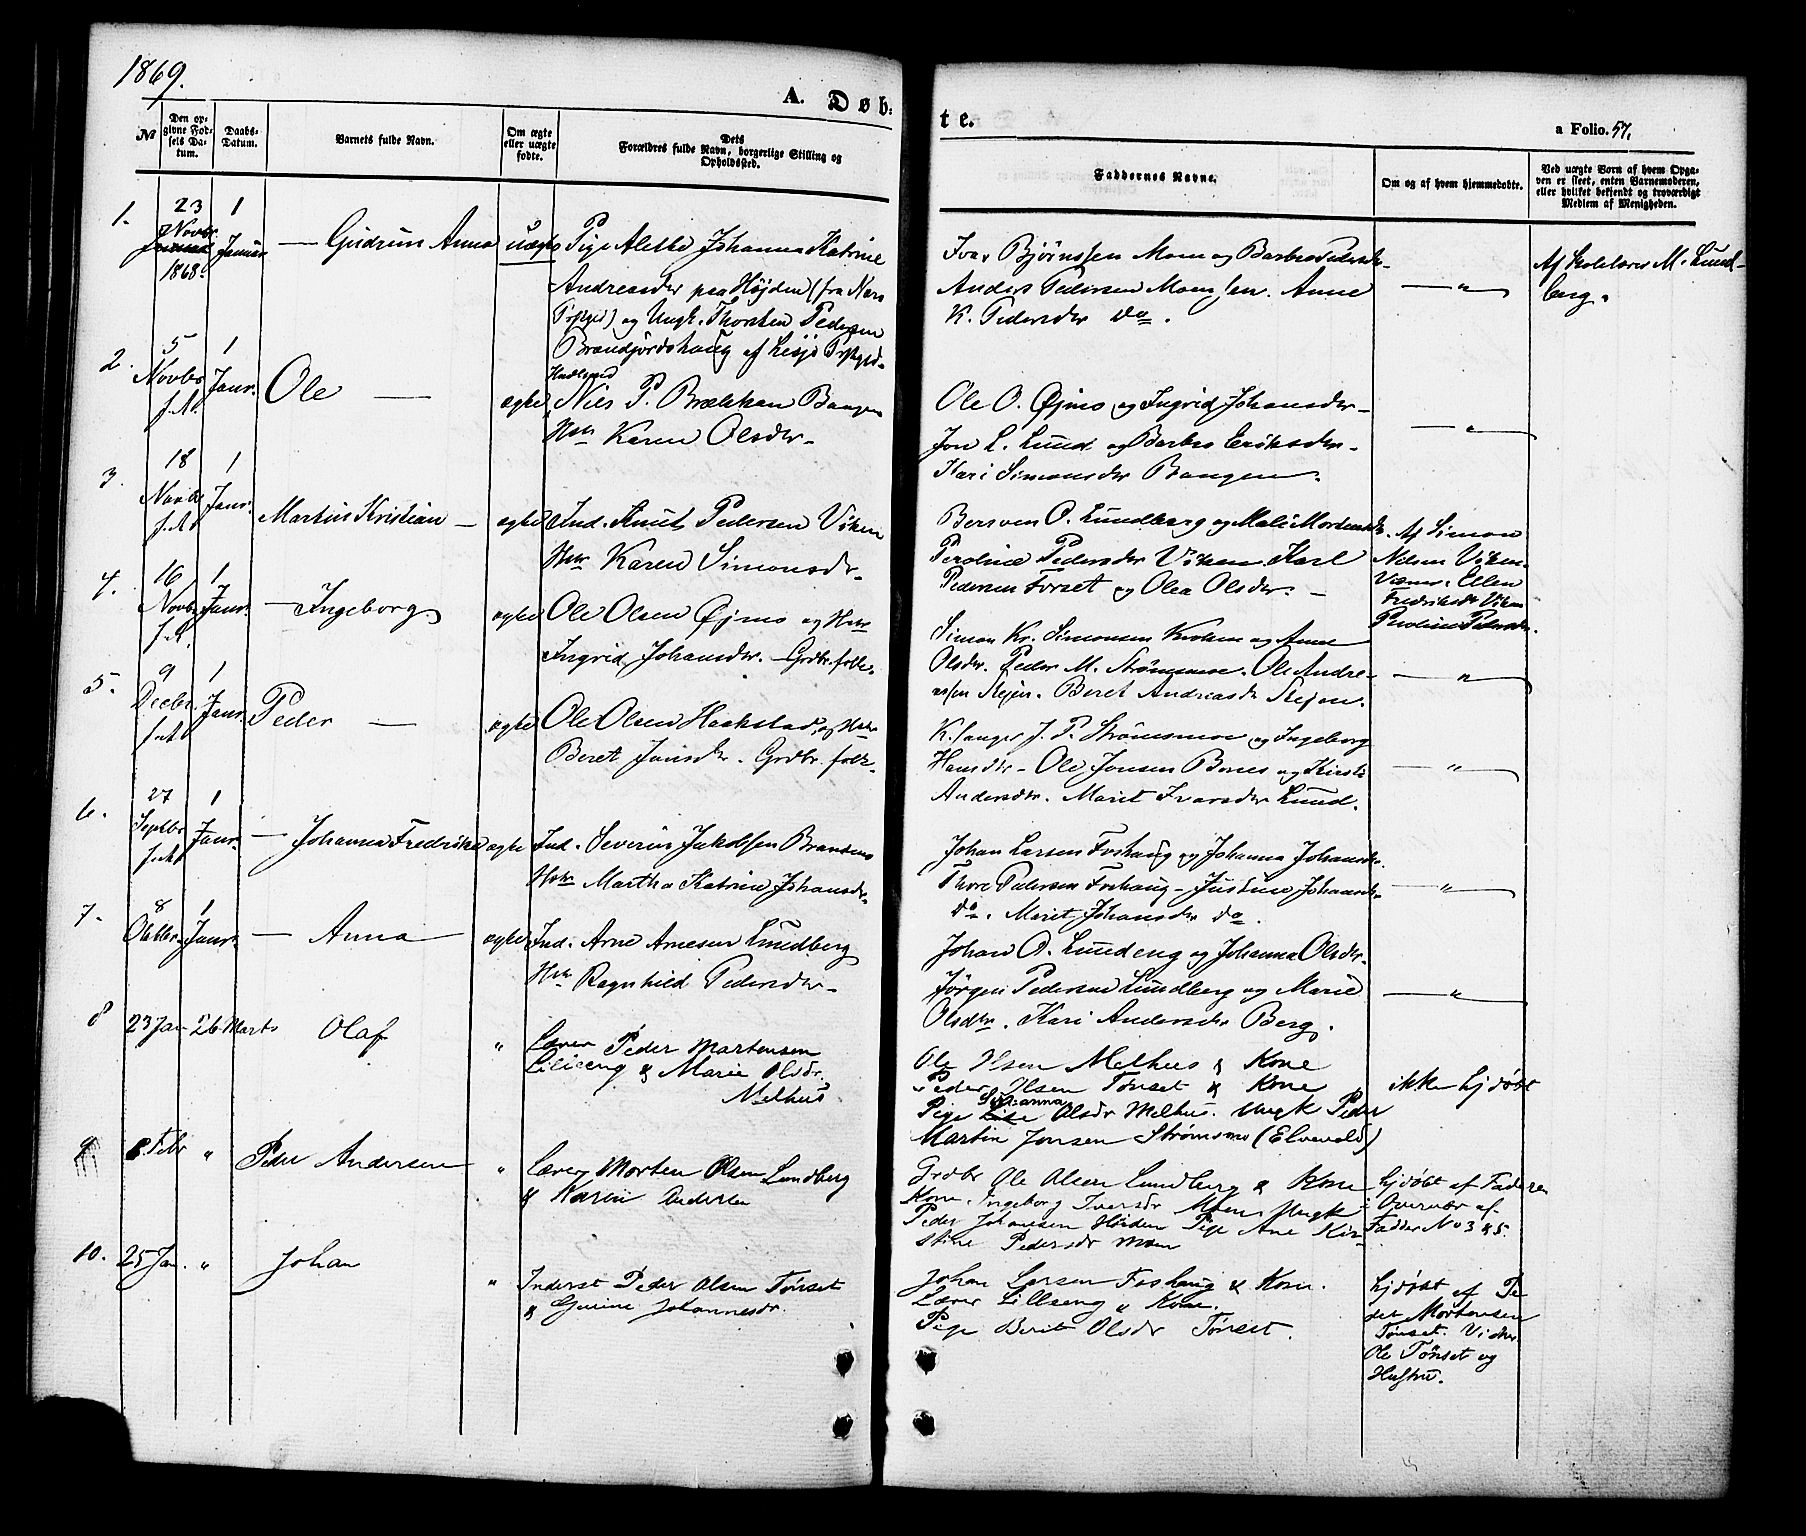 1869.
A. Døb-
te.
a Folio. 57.
№
Den opgivne Fødsels Datum.
Daabs-Datum.
Barnets fulde Navn.
Om ægte eller uægte fødte.
Dets Forældres fulde Navn, borgerlige Stilling og Opholdssted.
Faddernes Navne.
Om og af hvem hjemmedøbte.
Ved uægte Børn af hvem Opgaven er skeet, enten Barnemoderen, eller hvilket bekjendt og troværdigt Medlem af Menigheden.
1. 23 Novbr. 1868. 1 Januar — Gudrun Anna uægte Pige Alette Johanna Katrine
Andreasdr paa Højden (fra
og Ungk. Thorsten Pedersen
Brandjordshaug af
Ivar Bjørnssen Moen og Barbro Pedersdr.
Anders Pedersen Moen Anne
K. Pedersdr do.
— " —
Af Skolelærer M. Lund-
berg.
2. 5 Novbr. f.A. 1 Janr. Ole — ægte Nils P. Brækken Bangen
Hstr Karen Olsdr.
Ole O. Øjmo og Ingrid Johansdr.
Jon L. Lund og Barbro Eriksdr.
Kari Simonsdr Bangen.
— " —
3. 18 f.A. 1 Janr. Martin Kristian — ægte Ind. Knut Pedersen Viken
Hstr Karen Simonsdr.
Bersven O. Lundberg og Mali
Perline Pedersdr Viken Karl
Pedersen Forset og Olea Olsdr. —
Af Simon
Nilsen Viken.
Ellen
Fredriksdr Viken
Pedersdr.
4. 16 Novbr. f.A. 1 Janr. — Ingeborg ægte Ole Olsen Øjmo og Hstr
Ingrid Johansdr. — Grdbr.folk.
Simon Kr. Simonsen og Anne
Olsdr. Peder M. Strømsmoe. Ole Andre-
assen Beret Andreasdr
— " —
5. 9 Decbr. f.A. 1 Janr. Peder — ægte Ole Olsen Haakstad, og Hstr
Beret Jonsdr. Grdbr.folk.
K.sanger J. P. Strømsmoe og Ingeborg
Hansdr — Ole Jonsen Bones og Kirsti
Andersdr. Marit Ivarsdr Lund.
— " —
6. 27 Septbr. f.A. 1 Janr. — Johanna Fredrikke ægte Ind. Severin Jakobsen
Hstr Martha Katrine Johansdr.
Johan Larsen Foshaug og Johanna Johansdr.
Thore Pedersen Foshaug — Justine Johansdr.
do. Meret Johansdr do.
— " —
7. 8 Oktbr. 1 Janr. — Anna ægte Ind. Arne Arnesen Lundberg
Hstr Ragnhild Pedersdr.
Johan A. Lundeng og Johanna Olsdr.
Jørgen Pedersen Lundberg og Marie
Olsdtr. Kari Andersdr Berg.
— " —
8 23 Jan 26 Marts Olaf " Lærer Peder Martensen
Lilleeng & Marie Olsdr.
Melhus
Ole Olsen Melhus & Kone
Peder Olsen Tønset & Kone
Pige Susanna Olsdr Melhus. Ungk Peder
Martin Jonsen Strømsmo (Elvevold)
ikke hjdøbt
9 8. Febr " Peder Andersen " Lærer Morten Olsen Lundberg
& Karen
Grdbr Ole Olsen Lundberg & Kone
Kone Ingeborg Iversdr Moen, Ungk
Peder Johansen Højden Pige Ane Kir-
stine Pedersdr Moen
hjdøbt af Faderen
i Overvær af
Fadder No 3 & 5.
10. 25 Jan. " Johan " Inderst Peder Olsen Tønset
& Johannesdr.
Johan Larsen Foshaug & Kone.
Lærer Lilleeng & Kone.
Pige Berit Olsdr Tønset.
hjdøbt af Pe-
der Mortensen
Tønset. Vidner
Ole Tønset og
Hustru.